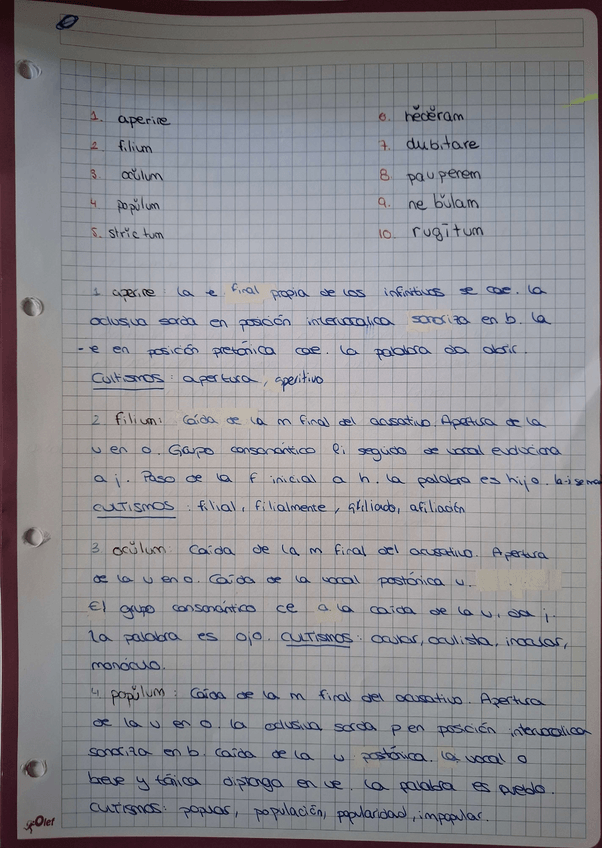 1. aperire
2 filium
3. ocŭlum
4. popŭlum
5. strictum
6. nĕcĕram
7. dubitare
8. pauperem
9. nebŭlam
10. rugitum
1 aperire: la e final propia de los infinitivos se cae. La
oclusiva sorda en posición intervocalica sonoriza en b. La
-e en posición pretónica cae. La palabra da abrir.
Cultismos: apertura, aperitivo
2 filium: Caída de la m final del acusativo. Apertura de la
u en o. Grupo consonántico li seguido de vocal evoluciona
a j. Paso de la f inicial a h. La palabra es hijo.
CULTISMOS: filial, filialmente, afiliado, afiliación
3 ocŭlum: Caída de la m final del acusativo. Apertura
de la u en o. Caída de la vocal postónica u.
El grupo consonántico a la caída de la u, da j.
La palabra es ojo. CULTISMOS: ocular, oculista, inocular,
monóculo.
4 popŭlum: Caída de la m final del acusativo. Apertura
de la u en o. La oclusiva sorda p en posición intervocalica
sonoriza en b. Caída de la u postónica. La vocal o
breve y tónica diptonga en ue. La palabra es pueblo.
CULTISMOS: popular, populación, popularidad, impopular.
Olet